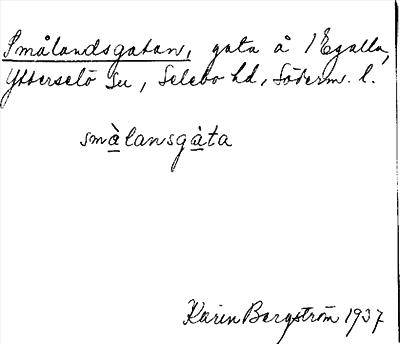 Smålandsgatan, gata å 1 Egalla,
Ytterselö Sn, Selebo hd, Söderm. l.
smàlansgàta
Karin Bergström 1937